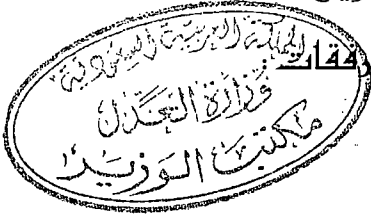 فقات
المملكة العربية السعودية
وزارة العدل
مكتب الوزير